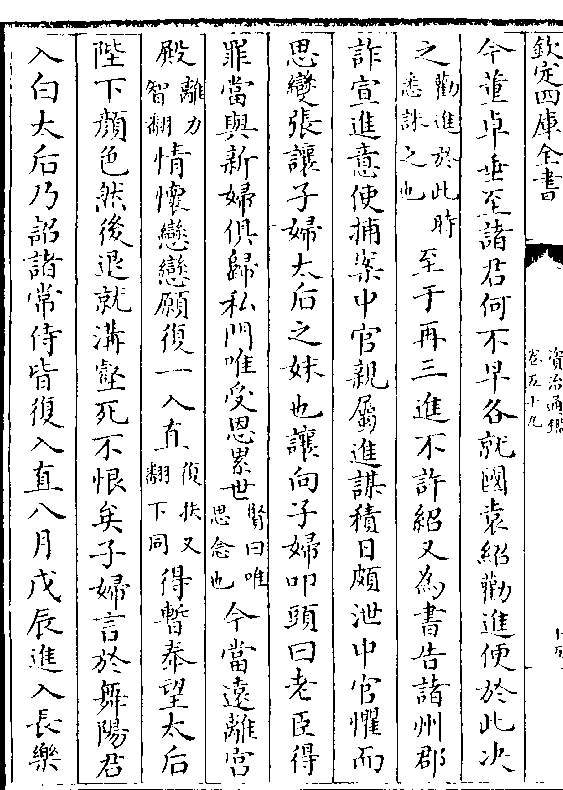 欽定四庫全書
資治通鑑
卷五十九
今董卓垂至諸君何不早各就國袁紹勸進便於此決
之勸進於此時悉誅之也至于再三進不許紹又為書告諸州郡
詐宣進意使捕案中官親屬進謀積日頗泄中官懼而
思變張讓子婦太后之妹也讓向子婦叩頭曰老臣得
罪當與新婦俱歸私門唯受恩累世賢曰唯思念也今當遠離宮
殿離力智翻情懷戀戀願復一入直復扶又翻下同得暫奉望太后
陛下顔色然後退就溝壑死不恨矣子婦言於舞陽君
入白太后乃詔諸常侍皆復入直八月戊辰進入長樂